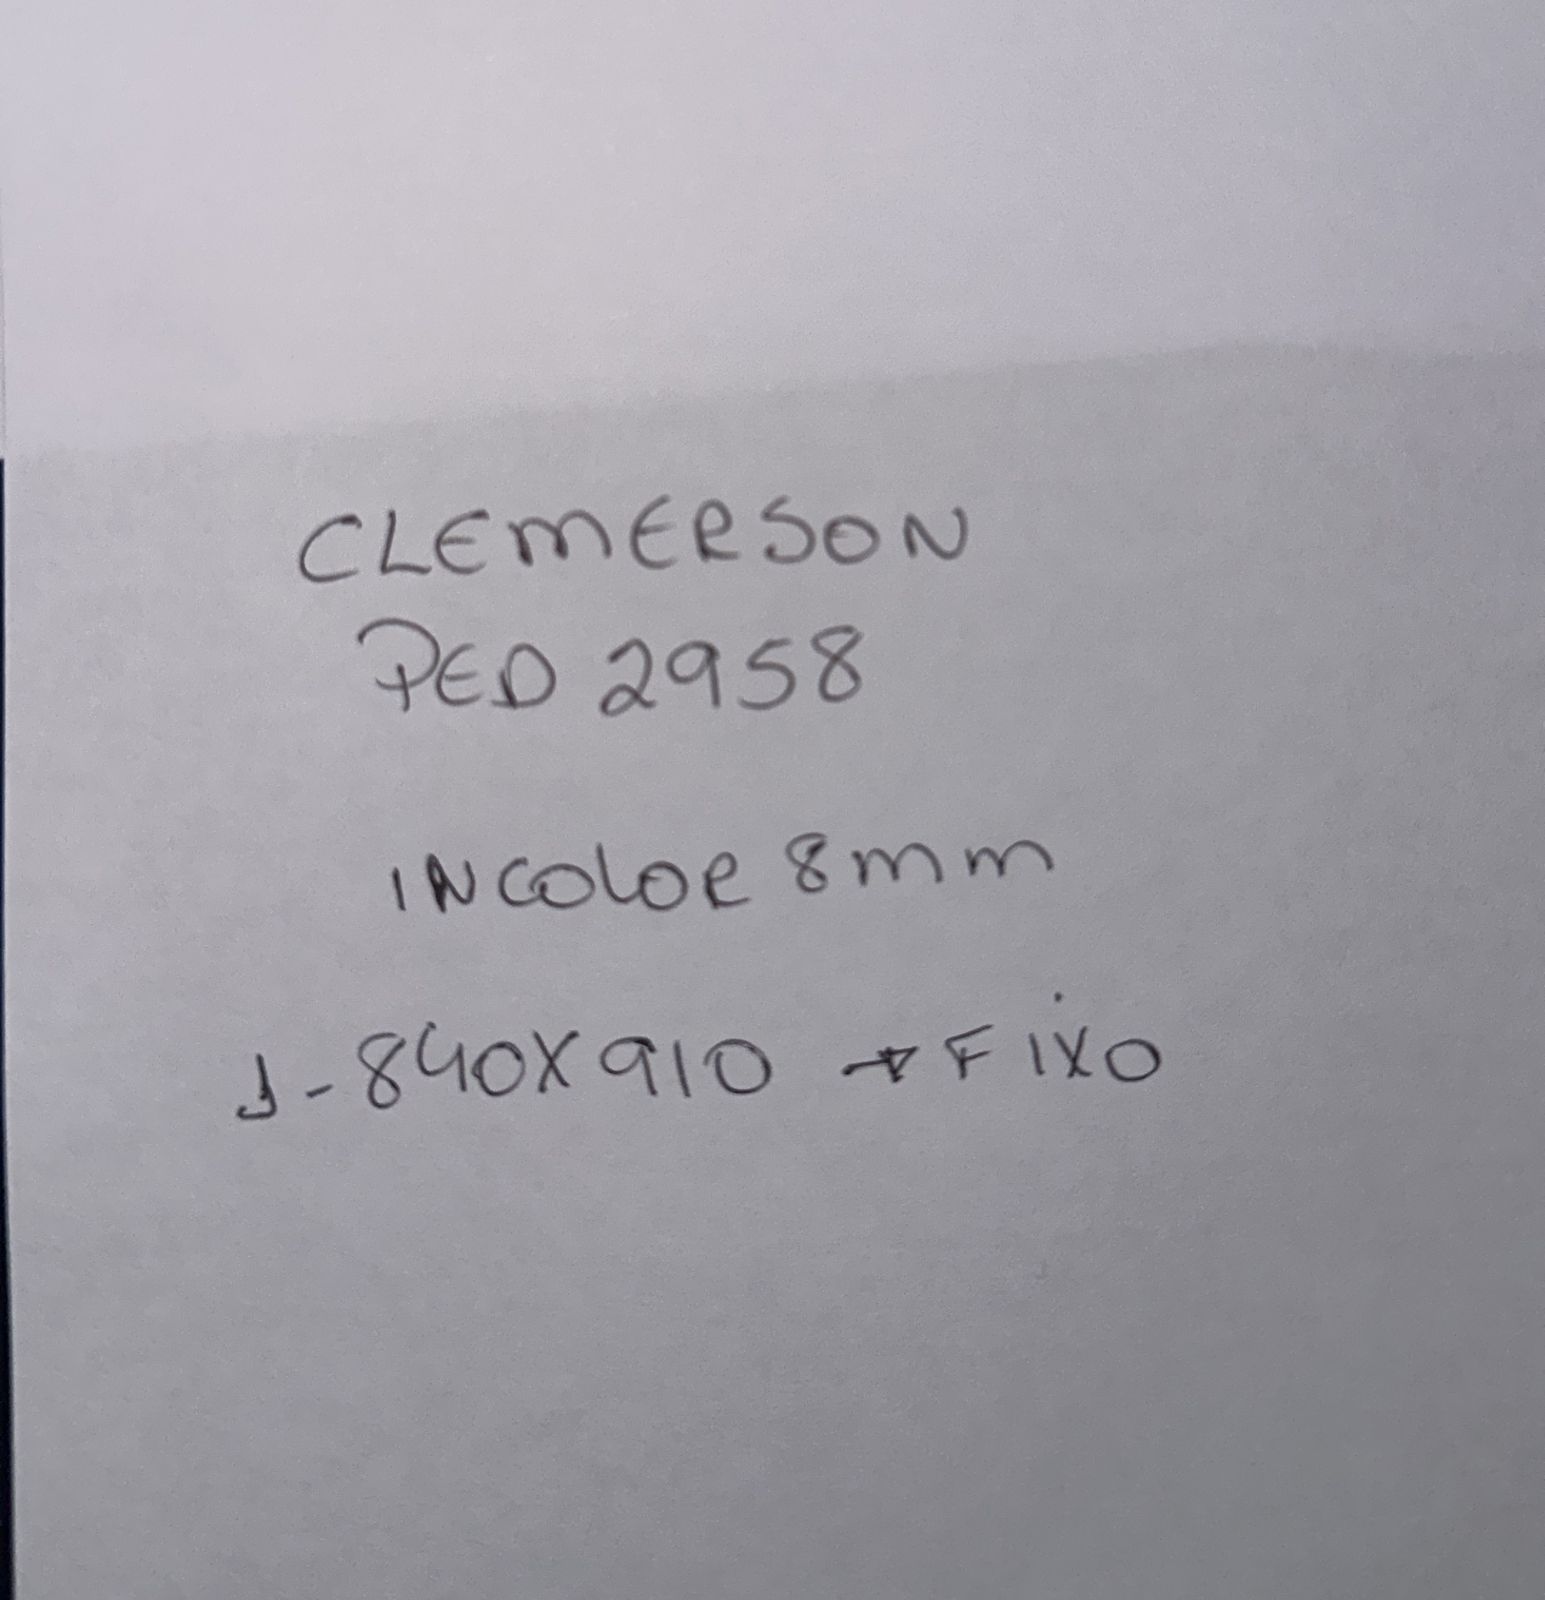 CLEMERSON
PED 2958
INCOLOR 8mm
1-840X910 → FIXO